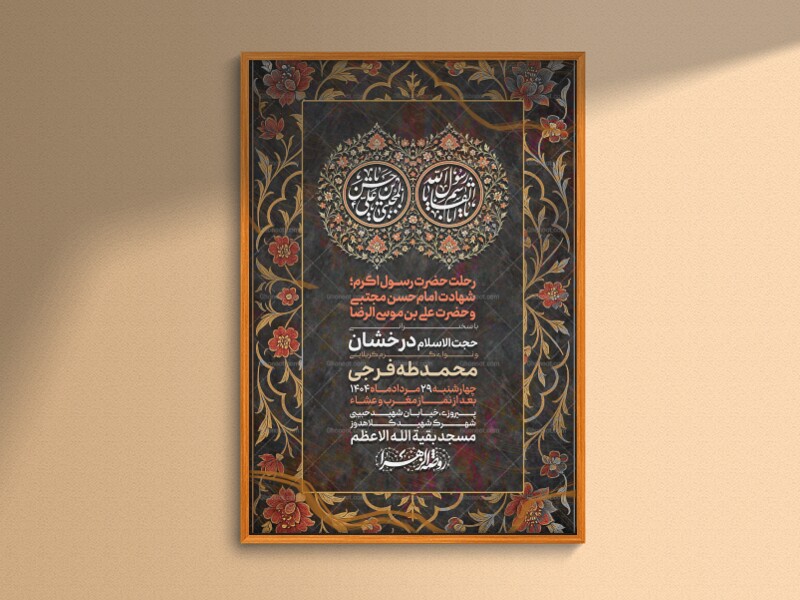 یا رسول الله
یا ابا القاسم
یا حسن بن علی
المجتبی
رحلت حضرت رسول اکرم؛
شهادت امام حسن مجتبی
و حضرت علی بن موسی الرضا
با سخنرانی
حجت الاسلام درخشان
و نوای گرم کربلایی
محمد طه فرجی
چهارشنبه ۲۹ مرداد ماه ۱۴۰۴
بعد از نماز مغرب و عشاء
پیروزی، خیابان شهید حبیبی
شهرک شهید کلاهدوز
مسجد بقیة الله الاعظم
روضة الزهرا